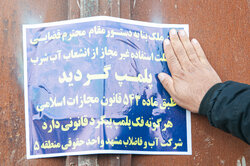 ملک بنا به دستور مقام محترم قضایی
علت استفاده غیر مجاز از انشعاب آب شرب
پلمب گردید
طبق ماده ۵۴۳ قانون مجازات اسلامی
هرگونه فک پلمب پیگرد قانونی دارد
شرکت آب و فاضلاب مشهد واحد حقوقی منطقه ۵